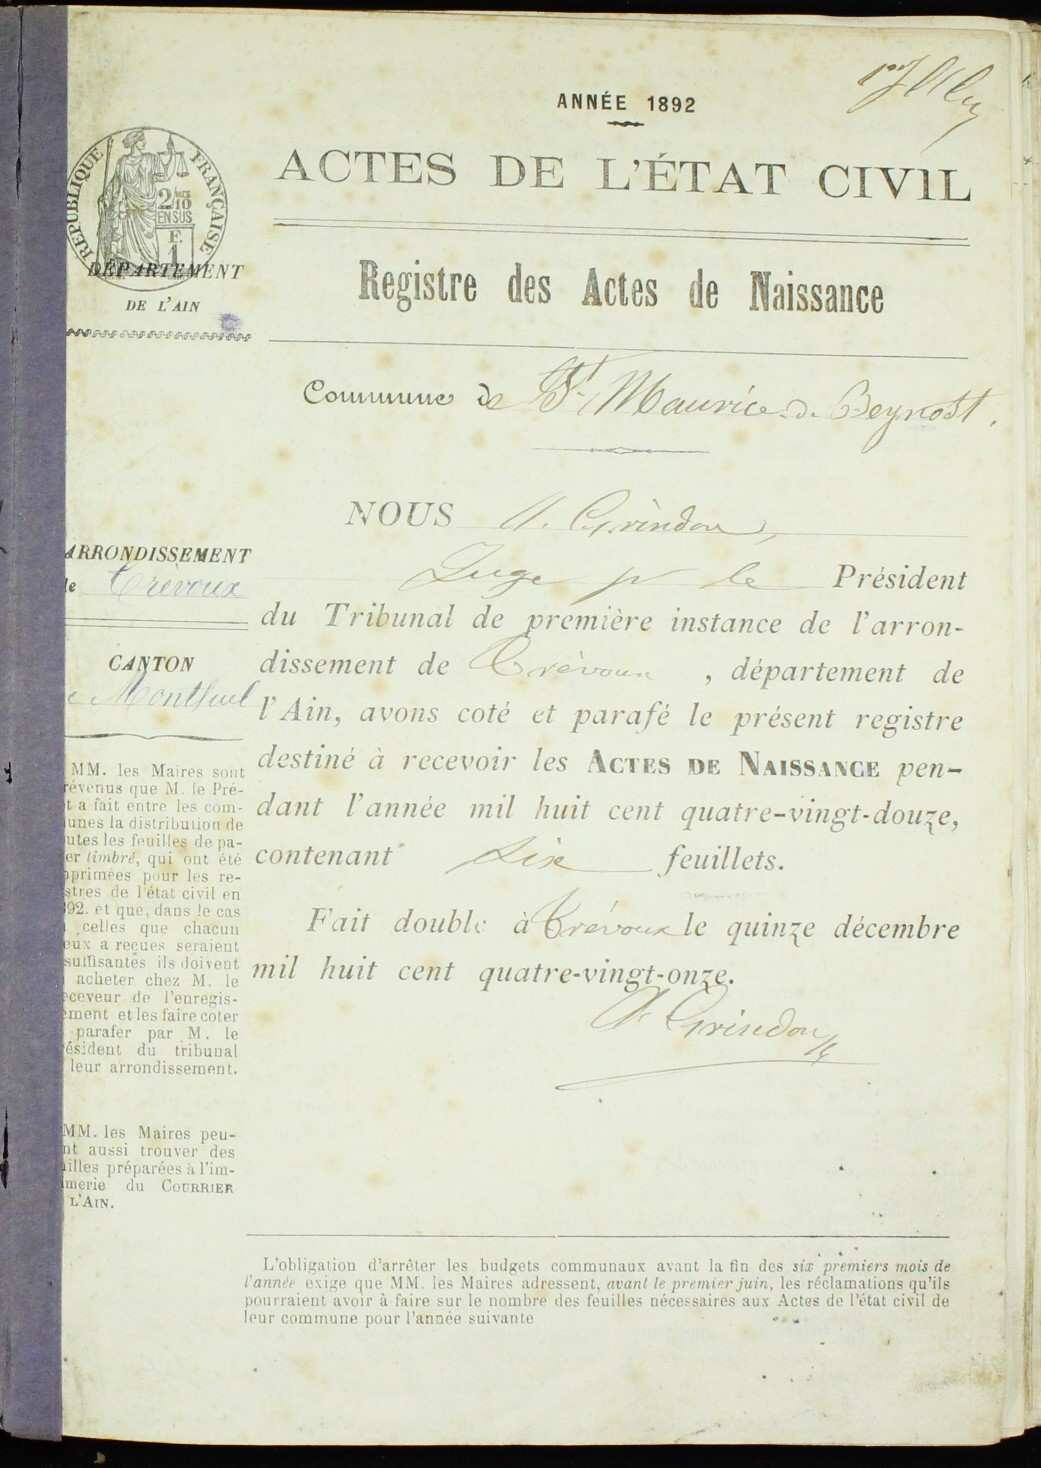 ANNÉE 1892
ACTES DE L'ÉTAT CIVIL
RÉPUBLIQUE FRANÇAISE
2/10
EN SUS
F.
1
DÉPARTEMENT
DE L'AIN
Registre des Actes de Naissance
Commune de St Maurice de Beynost.
ARRONDISSEMENT
de Trévoux
CANTON
de Montluel
MM. les Maires sont
révenus que M. le Pré-
t a fait entre les com-
unes la distribution de
utes les feuilles de pa-
er timbré, qui ont été
primées pour les re-
stres de l'état civil en
92. et que, dans le cas
celles que chacun
eux a reçues seraient
suffisantes ils doivent
acheter chez M. le
eceveur de l'enregis-
ement et les faire coter
parafer par M. le
ésident du tribunal
leur arrondissement.
MM. les Maires peu-
nt aussi trouver des
illes préparées à l'im-
merie du COURRIER
L'AIN.
NOUS A. Grindon,
Juge pr le Président
du Tribunal de première instance de l'arron-
dissement de Trévoux, département de
l'Ain, avons coté et parafé le présent registre
destiné à recevoir les ACTES DE NAISSANCE pen-
dant l'année mil huit cent quatre-vingt-douze,
contenant six feuillets.
Fait double à Trévoux le quinze décembre
mil huit cent quatre-vingt-onze.
A. Grindon
L'obligation d'arrêter les budgets communaux avant la fin des six premiers mois de
l'année exige que MM. les Maires adressent, avant le premier juin, les réclamations qu'ils
pourraient avoir à faire sur le nombre des feuilles nécessaires aux Actes de l'état civil de
leur commune pour l'année suivante